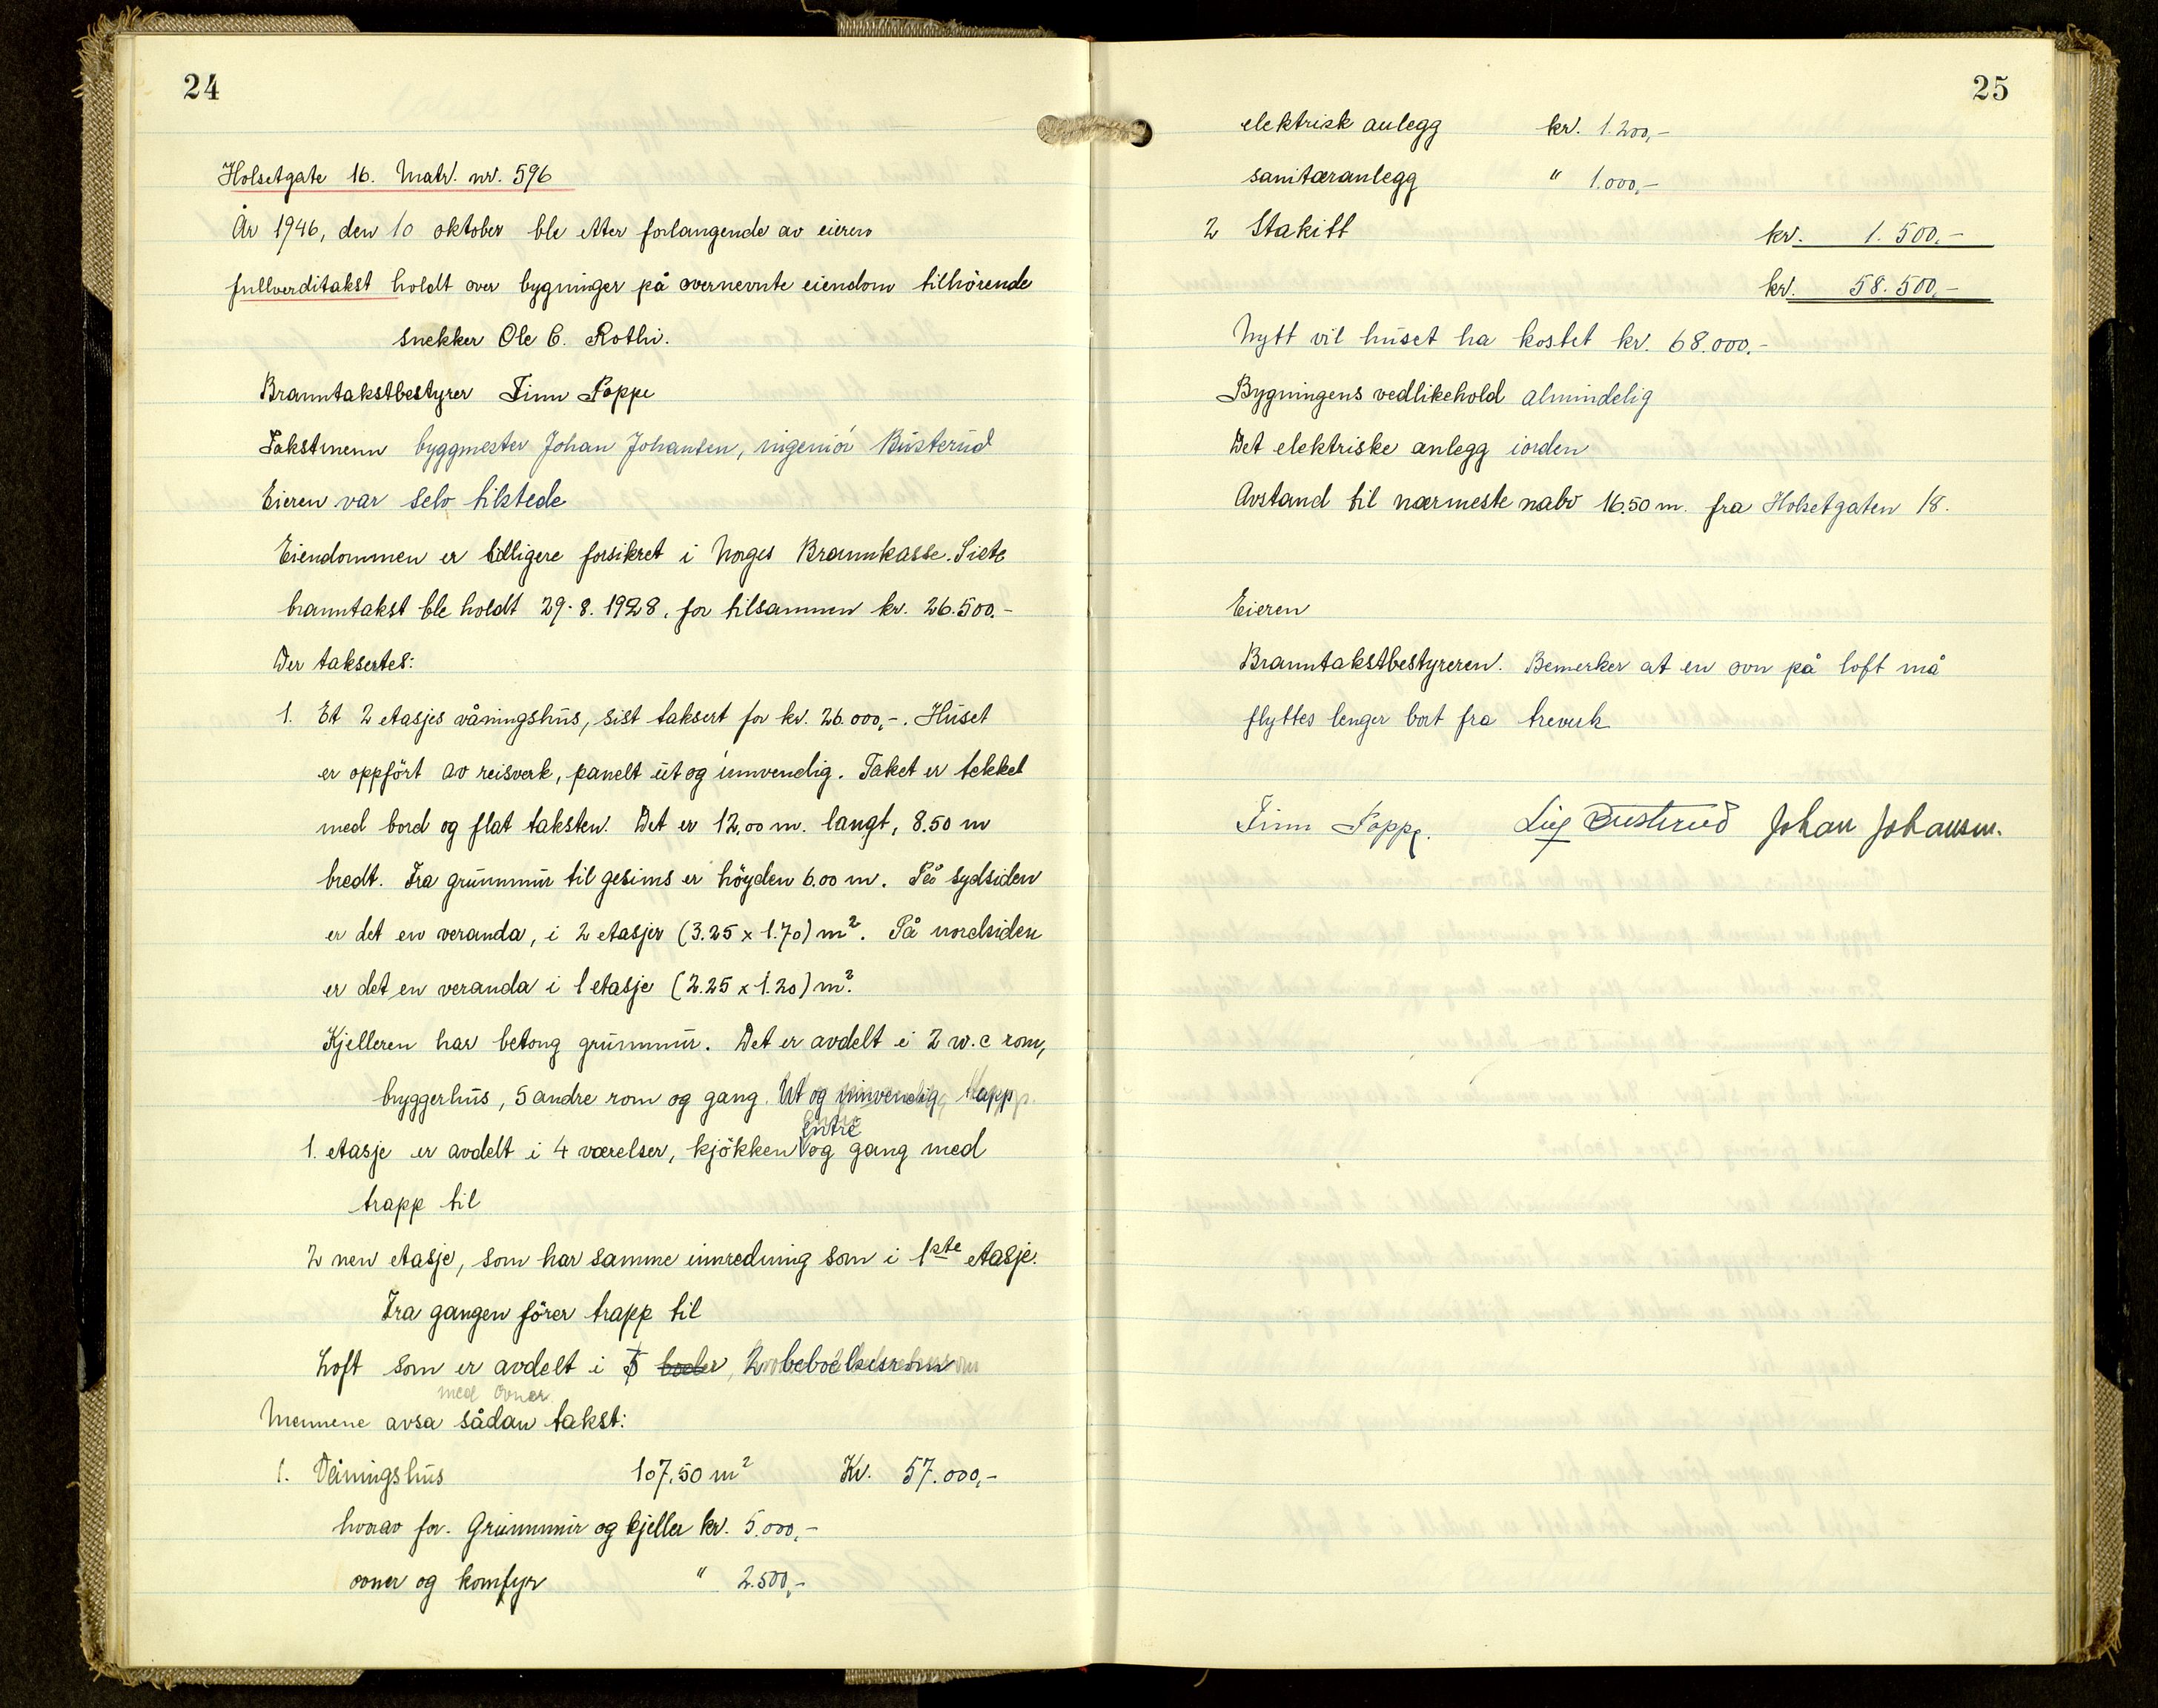 24
Holsetgate 16. Matr. nr. 596
År 1946, den 10 oktober ble etter forlangende av eieren
fullverditakst holdt over bygninger på overnevnte eiendom tilhörende
snekker Ole C. Rothi.
Branntakstbestyrer Finn Poppe
Takstmenn byggmester Johan Johansen, ingeniör Busterud
Eieren var selv tilstede
Eiendommen er tidligere forsikret i Norges Brannkasse. Siste
branntakst ble holdt 29.8.1928, for tilsammen kr. 26.500.-
Der taksertes:
1. Et 2 etasjes våningshus, sist taksert for kr. 26.000,-. Huset
er oppfört av reisverk, panelt ut og innvendig. Taket er tekket
med bord og flat taksten. Det er 12,00 m. langt, 8.50 m
bredt. Fra grunnmur til gesims er höyden 6.00 m. På sydsiden
er det en veranda, i 2 etasjer (3.25 x 1.70) m². På nordsiden
er det en veranda i 1 etasje (2.25 x 1.20) m².
Kjelleren har betong grunnmur. Det er avdelt i 2 w.c rom,
bryggerhus, 5 andre rom og gang. Ut og innvendig trapp
entré
1. etasje er avdelt i 4 værelser, kjökken og gang med
trapp til
2 nen etasje, som har samme innredning som i 1ste etasje.
Fra gangen förer trapp til
Loft som er avdelt i 5 boder, 2 beboelsesrom
med ovner
Mennene avsa sådan takst:
1. Våningshus 107,50 m² Kr. 57.000,-
hvorav for. Grunnmur og kjeller kr. 5.000,-
ovner og komfyr " 2.500,-
25
elektrisk anlegg kr. 1.200,-
sanitæranlegg " 1.000,-
2 Stakitt kr. 1.500,-
kr. 58.500,-
Nytt vil huset ha kostet kr. 68.000.-
Bygningens vedlikehold almindelig
Det elektriske anlegg iorden
Avstand til nærmeste nabo 16.50 m. fra Holsetgaten 18.
Eieren
Branntakstbestyreren. Bemerker at en ovn på loft må
flyttes lenger bort fra treverk
Finn Poppe. Busterud Johan Johansen.